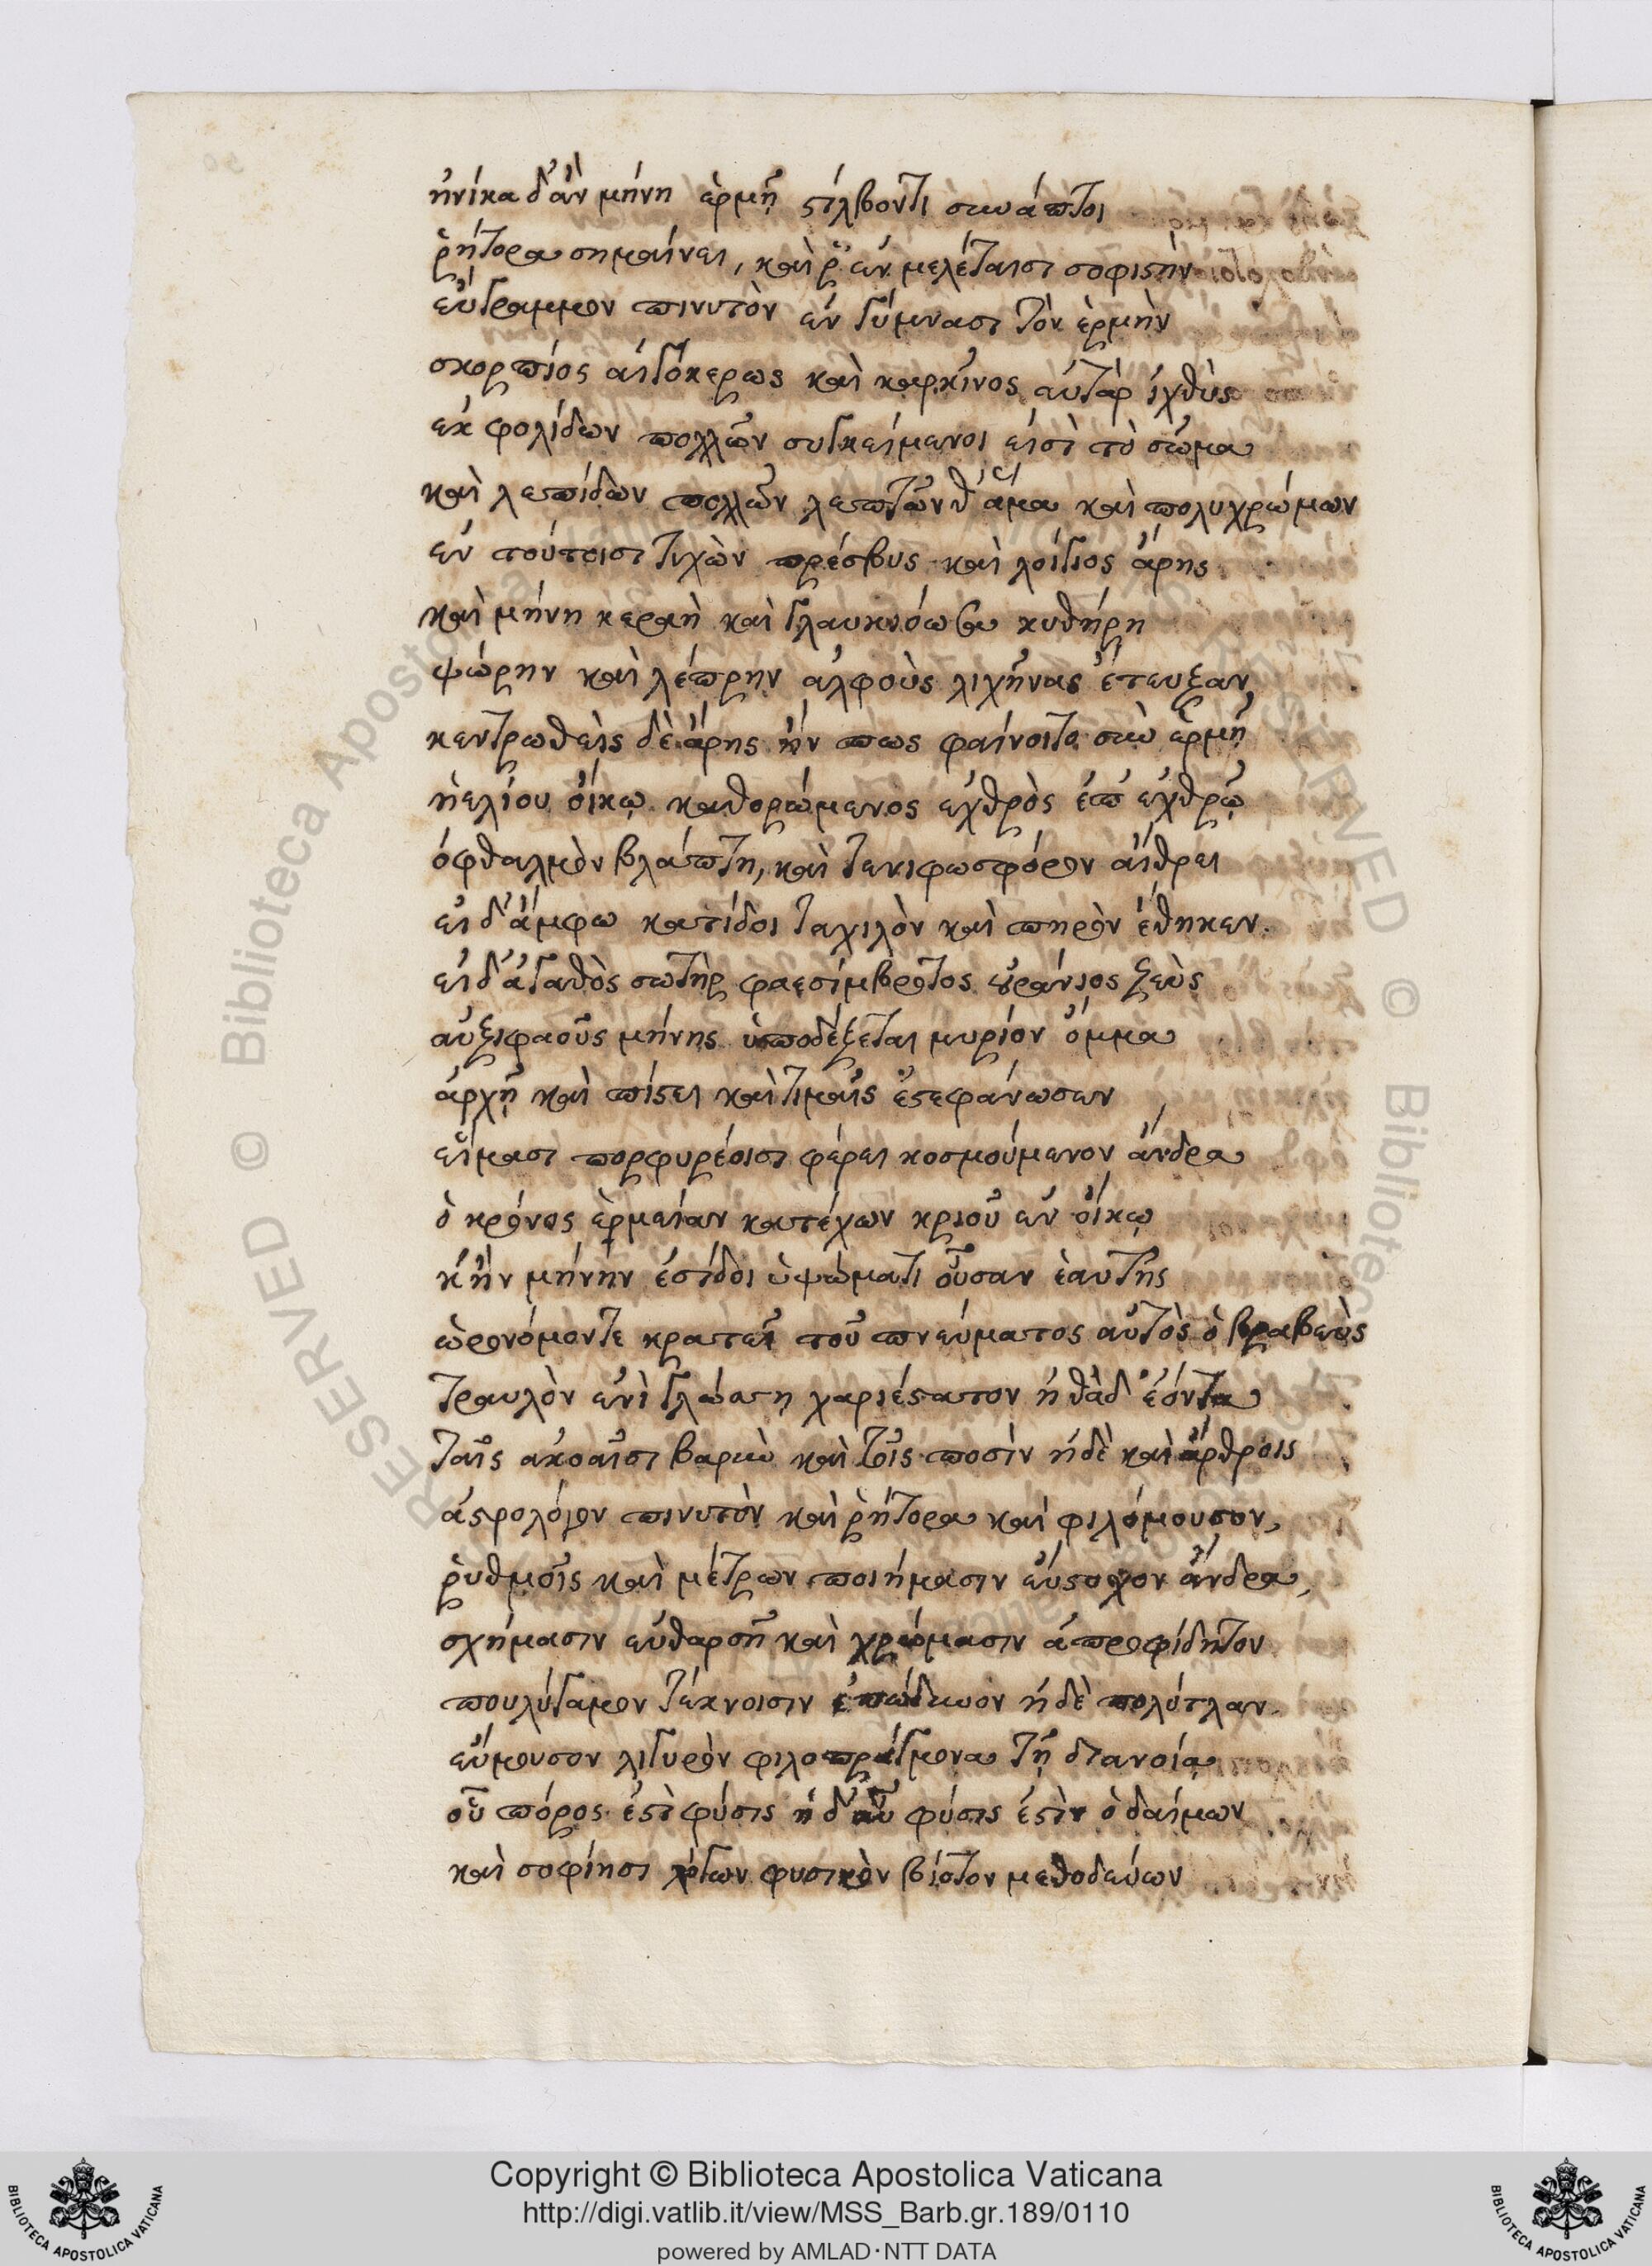 ἡνίκα δ' ἂν μήνη ἑρμῇ στίλβοντι συνάπτοι
ῥήτορα σημαίνει, καὶ ῥ' ἐν μελέταισι σοφιστὴν
εὐγραμμον πινυτὸν ἐν γύμνασι τὸν ἑρμὴν
σκορπίος αἰγόκερως καὶ καρκῖνος αὐτὰρ ἰχθὺς
ἐκ φολίδων πολλῶν συγκείμενοι εἰσὶ τὸ σῶμα
καὶ λεπίδων πολλῶν λεπτῶν θ' ἅμα καὶ πολυχρώμων
ἐν τούτοισι τυχὼν πρέσβυς καὶ λοίγιος ἄρης
καὶ μήνη κεραὴ καὶ γλαυκιόωσα κυθήρη
ψώρην καὶ λέπρην ἀλφοὺς λιχῆνας ἔτευξαν
κεντρωθεὶς δὲ ἄρης ἤν πως φαίνοιτο σὺν ἑρμῇ
ἠελίου οἴκῳ καθορώμενος ἐχθρὸς ἐπ' ἐχθρῷ
ὀφθαλμὸν βλάπτη, καὶ φωσφόρον αἴθρει
εἰ δ' ἄμφω κατίδοι καὶ πηρὸν ἔθηκεν.
εἰ δ' ἀγαθὸς σωτὴρ φαεσίμβροτος οὐράνιος ζεὺς
αὐξιφαοῦς μήνης ὑποδέξεται μυρίον ὄμμα
ἀρχῇ καὶ πίστει καὶ τιμαῖς ἐστεφάνωσεν
εἵμασι πορφυρέοισι φέρει κοσμούμενον ἄνδρα
ὁ κρόνος ἑρμείαν κατέχων κριοῦ ἐν οἴκῳ
κἢν μήνην ἐσίδοι ὑψώματι οὖσαν ἑαυτῆς
ὡρονόμον τε κρατεῖ τοῦ πνεύματος αὐτὸς ὁ βραβεὺς
τραυλὸν ἐνὶ γλώσσῃ χαριέστατον ἠθάδ' ἐόντα
ταῖς ἀκοαῖσι βαρὺν καὶ τοῖς ποσὶν ἠδὲ καὶ ἄρθροις
ἀστρολόγον πινυτὸν καὶ ῥήτορα καὶ φιλόμουσον,
ῥυθμοῖς καὶ μέτρων ποιήμασιν εὔστοχον ἄνδρα,
σχήμασιν εὐθαρσῆ καὶ χρώμασιν ἀπροφίδητον
πουλύγαμον τέκνοισιν ἐπώδυνον ἠδὲ πολύτλαν.
εὔμουσον λιγυρὸν φιλοπράγμονα τῇ διανοίᾳ
οὗ πόρος ἐστὶ φύσις ἡ δ' αὖ φύσις ἐστὶν ὁ δαίμων
καὶ σοφίησι φυσικὸν βίοτον μεθοδεύων
Copyright © Biblioteca Apostolica Vaticana
http://digi.vatlib.it/view/MSS_Barb.gr.189/0110
powered by AMLAD·NTT DATA